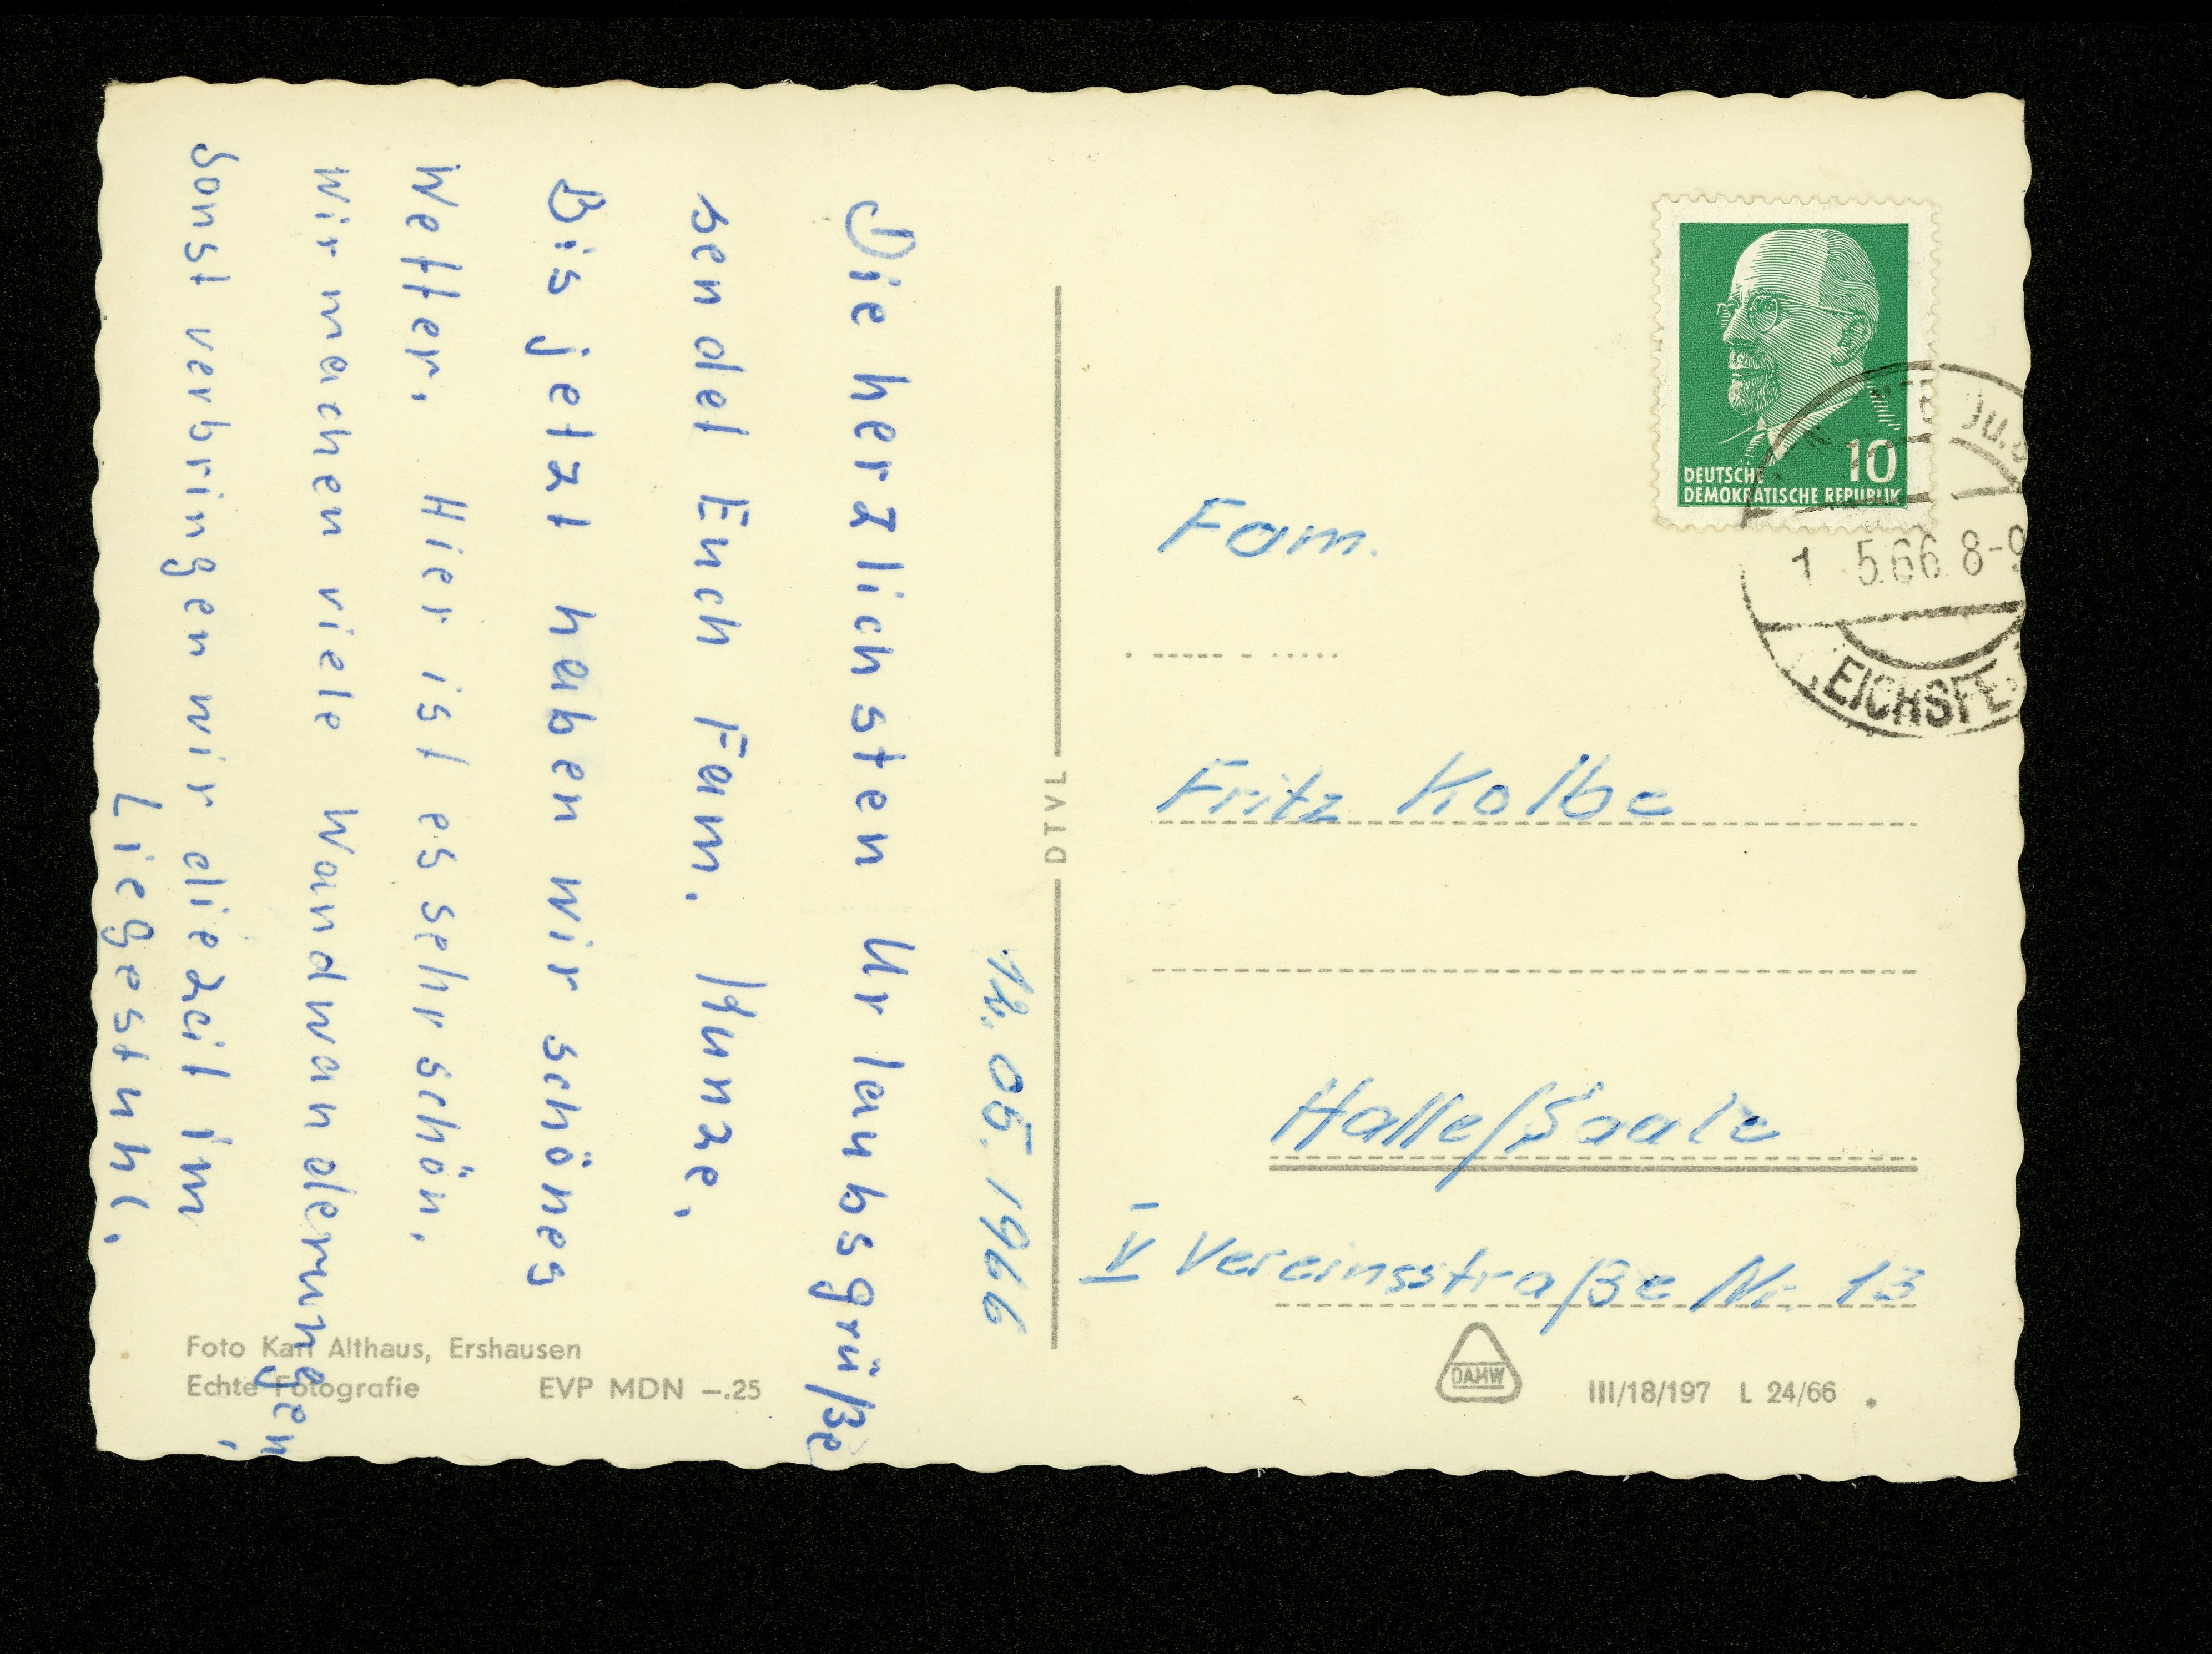 12. 05. 1966
Die herzlichsten Urlaubsgrüße
sendet Euch Fam. Kunze.
Bis jetzt haben wir schönes
Wetter. Hier ist es sehr schön.
Wir machen viele Wandwanderungen,
sonst verbringen wir die Zeit im
Liegestuhl.
Foto Karl Althaus, Ershausen
Echte Fotografie EVP MDN –.25
DTVL
DEUTSCHE
DEMOKRATISCHE REPUBLIK
10
5.66 8-9
EICHSFE
Fam.
Fritz Kolbe
Halle/Saale
IV Vereinsstraße Nr. 13
DAMW
III/18/197 L 24/66